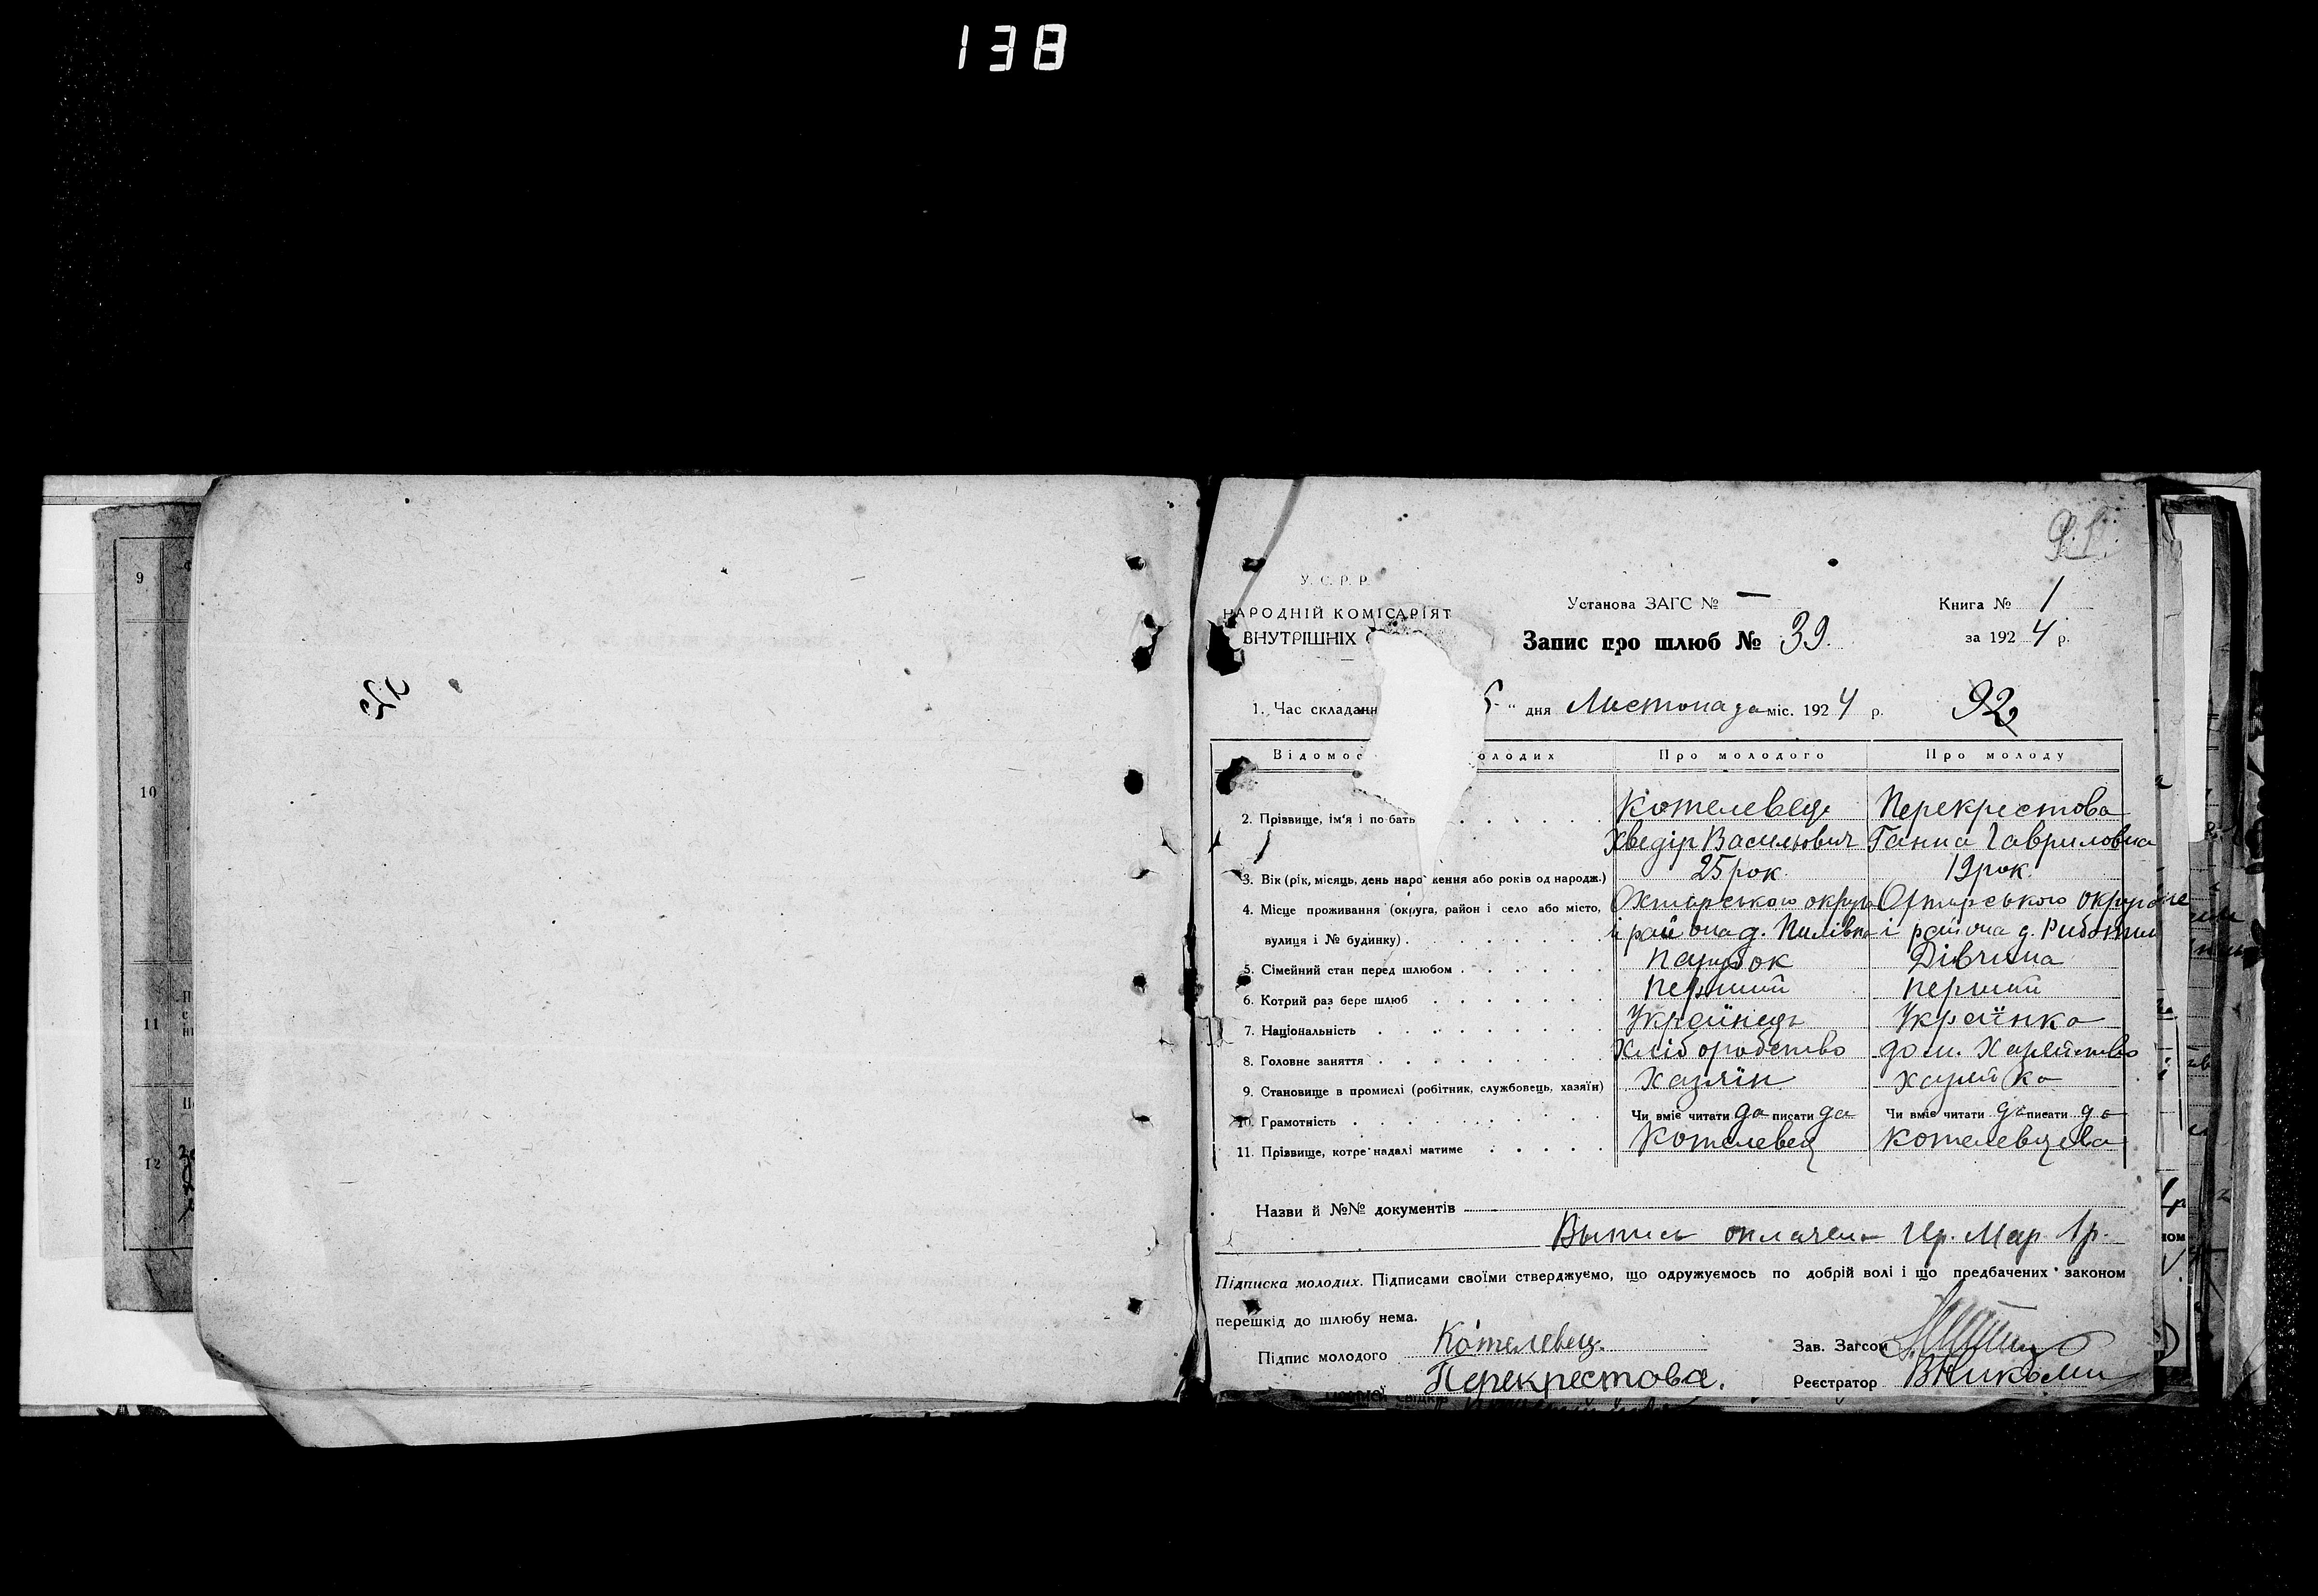 138
9
10
11
12
У. С. Р. Р.
НАРОДНІЙ КОМІСАРІЯТ
ВНУТРІШНІХ
Установа ЗАГС № —
Книга № 1
Запис про шлюб № 39.
за 1924 р.
1. Час складан
" дня Листопада міс. 1924 р.
92
Відомос олодих Про молодого Про молоду
2. Прізвище, ім'я і по бать Котелевець Перекрестова
Хведір Васильович Ганна Гавриловна
3. Вік (рік, місяць, день наро ження або років од народж.) 25 рок. 19 рок.
4. Місце проживання (округа, район і село або місто, Охтирського округа Охтирського округа
вулиця і № будинку) і района д. Пилівка і района д.
5. Сімейний стан перед шлюбом Парубок Дівчина
6. Котрий раз бере шлюб Перший перший
7. Національність Українець Українка
8. Головне заняття Хліборобство дом. Хазяйство
9. Становище в промислі (робітник, службовець, хазяїн) Хазяїн хазяйка
10. Грамотність Чи вміє читати да писати да Чи вміє читати да писати да
11. Прізвище, котре надалі матиме Котелевец Котелевцева
Назви й №№ документів
Выпись оплачена Гер. Мар. 1р.
Підписка молодих. Підписами своїми стверджуємо, що одружуємось по добрій волі і що предбачених законом
перешкід до шлюбу нема.
Підпис молодого Котелевец.
Зав. Загсом
Перекрестова.
Реєстратор